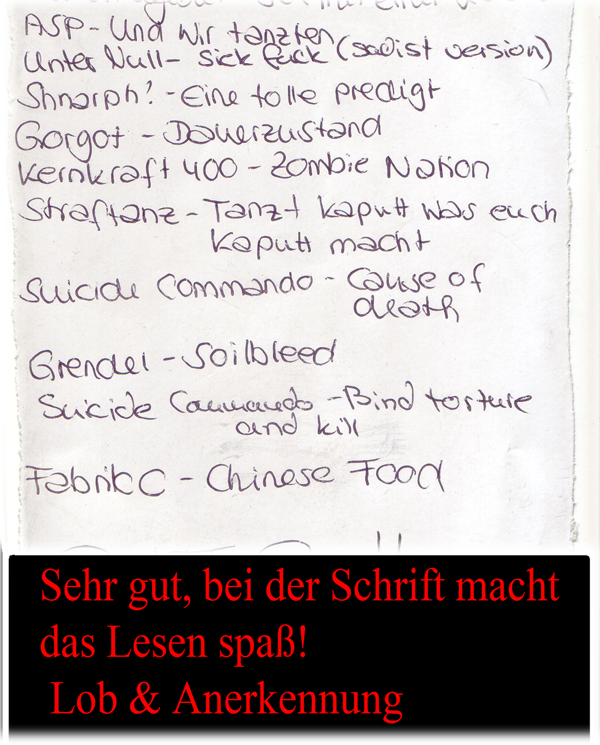 ASP - Und wir tanzten
Unter Null - Sick fuck (sadist version)
Shnarph! - Eine tolle predigt
Gorgot - Dauerzustand
Kernkraft 400 - Zombie Nation
Straftanz - Tanzt kaputt was euch
kaputt macht
Suicide Commando - Cause of
death
Grendel - Soilbleed
Suicide Commando - Bind torture
and kill
Fabrik C - Chinese Food
Sehr gut, bei der Schrift macht
das Lesen spaß!
Lob & Anerkennung